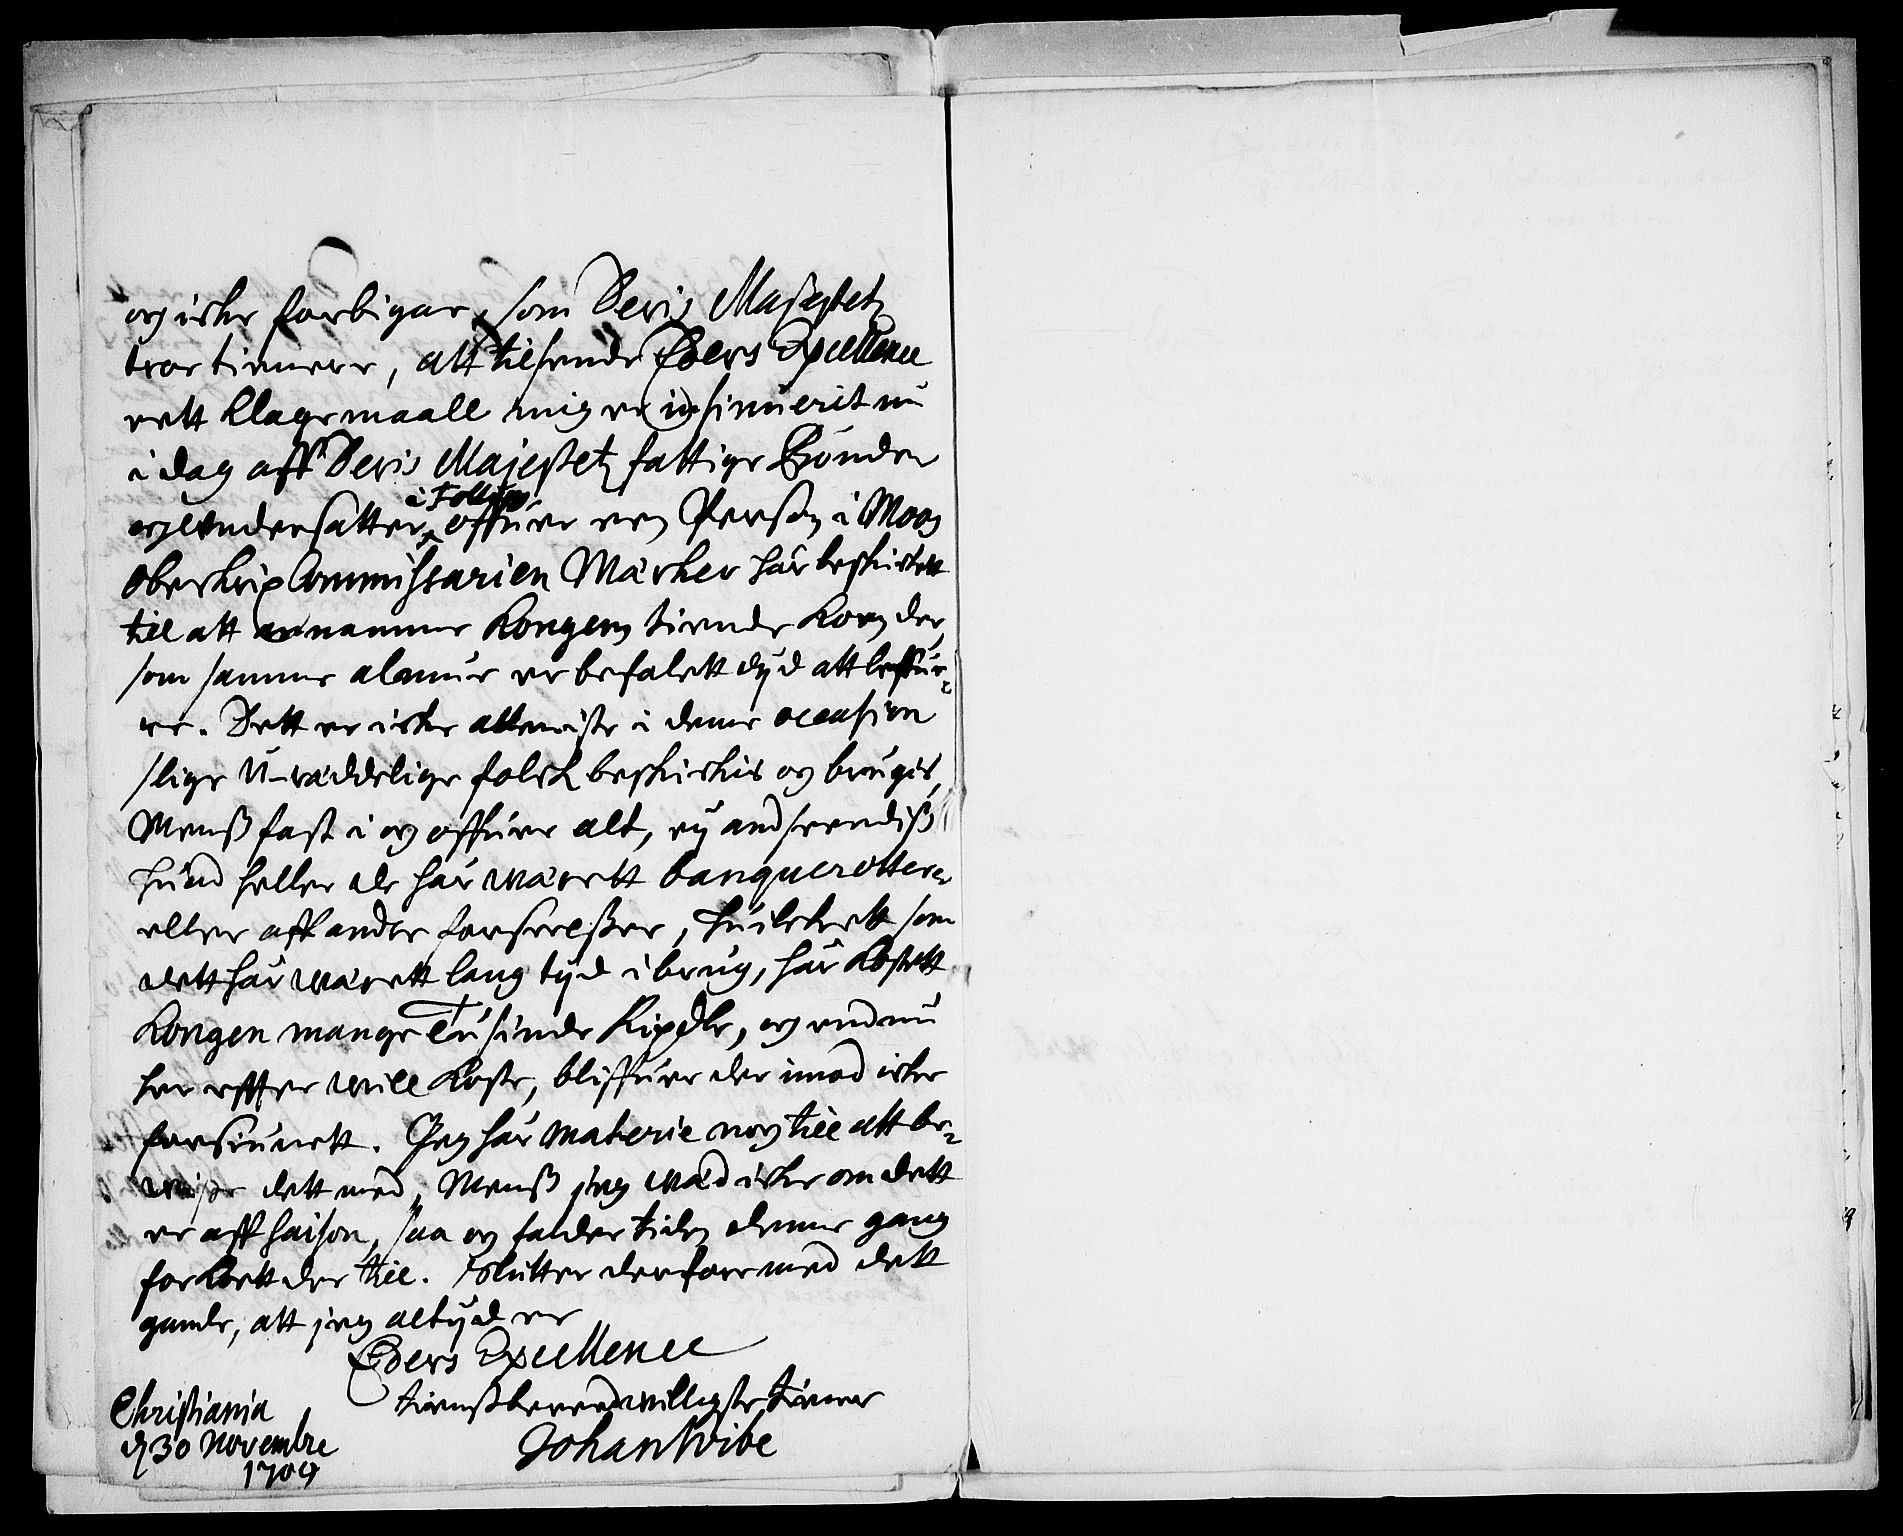 og icke forbigaae, som Deris Majestetz
troe tienere, att tilsende Eders Excellence
eett klagemaall mig er insinuerit nu
i dag aff Deris Majestetz fattige Bønder
og Undersatter i Follug, offuer een Person i Moss
Oberkrigs Commissarien Marker har beskicket
till att annamme Kongens tiende korn der
som samme almue er befalett dyd att leffue¬
re. Dett er icke alleniste i denne occasion
slige U-rædelige folck beskickis og brugis,
Menß fast i og offuer alt, ey andseendiß
huad heller de har wærett banquerotter
eller aff andre forseelßer, huilckett som
dett har wærett lang tyd i brug, har kostett
Kongen mange Tusinde Rixdlr, og endnu
her effter will koste, bliffuer der imod icke
forsiunett. Jeg har materie nog till att be¬
wise dett med, Menß jeg wed icke om dett
er aff saison, saa og falder tiden denne gang
for kort der till. Slutter derfore med dett
gamle, att jeg altyd er
Eders Excellence
tienstbereedwilligste tiener
Johan Wibe
Christiania
d 30 Novembre
1709